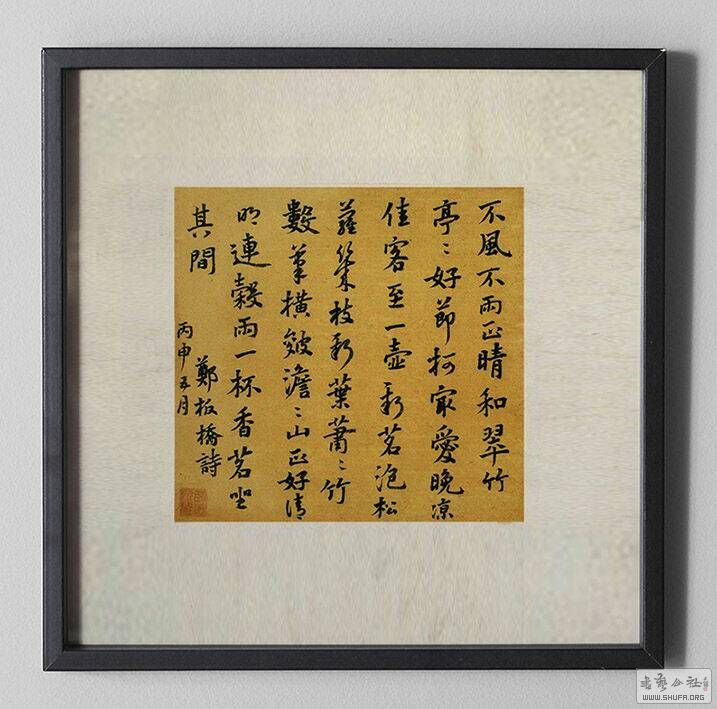 不風不雨正晴和翠竹
亭〻好節柯最愛晚凉
佳客至一壺新茗泡松
蘿幾枝新葉蕭〻竹
數筆橫皴澹〻山正好清
明連穀雨一杯香茗坐
其間
鄭板橋詩
丙申五月
书艺公社
WWW.SHUFA.ORG